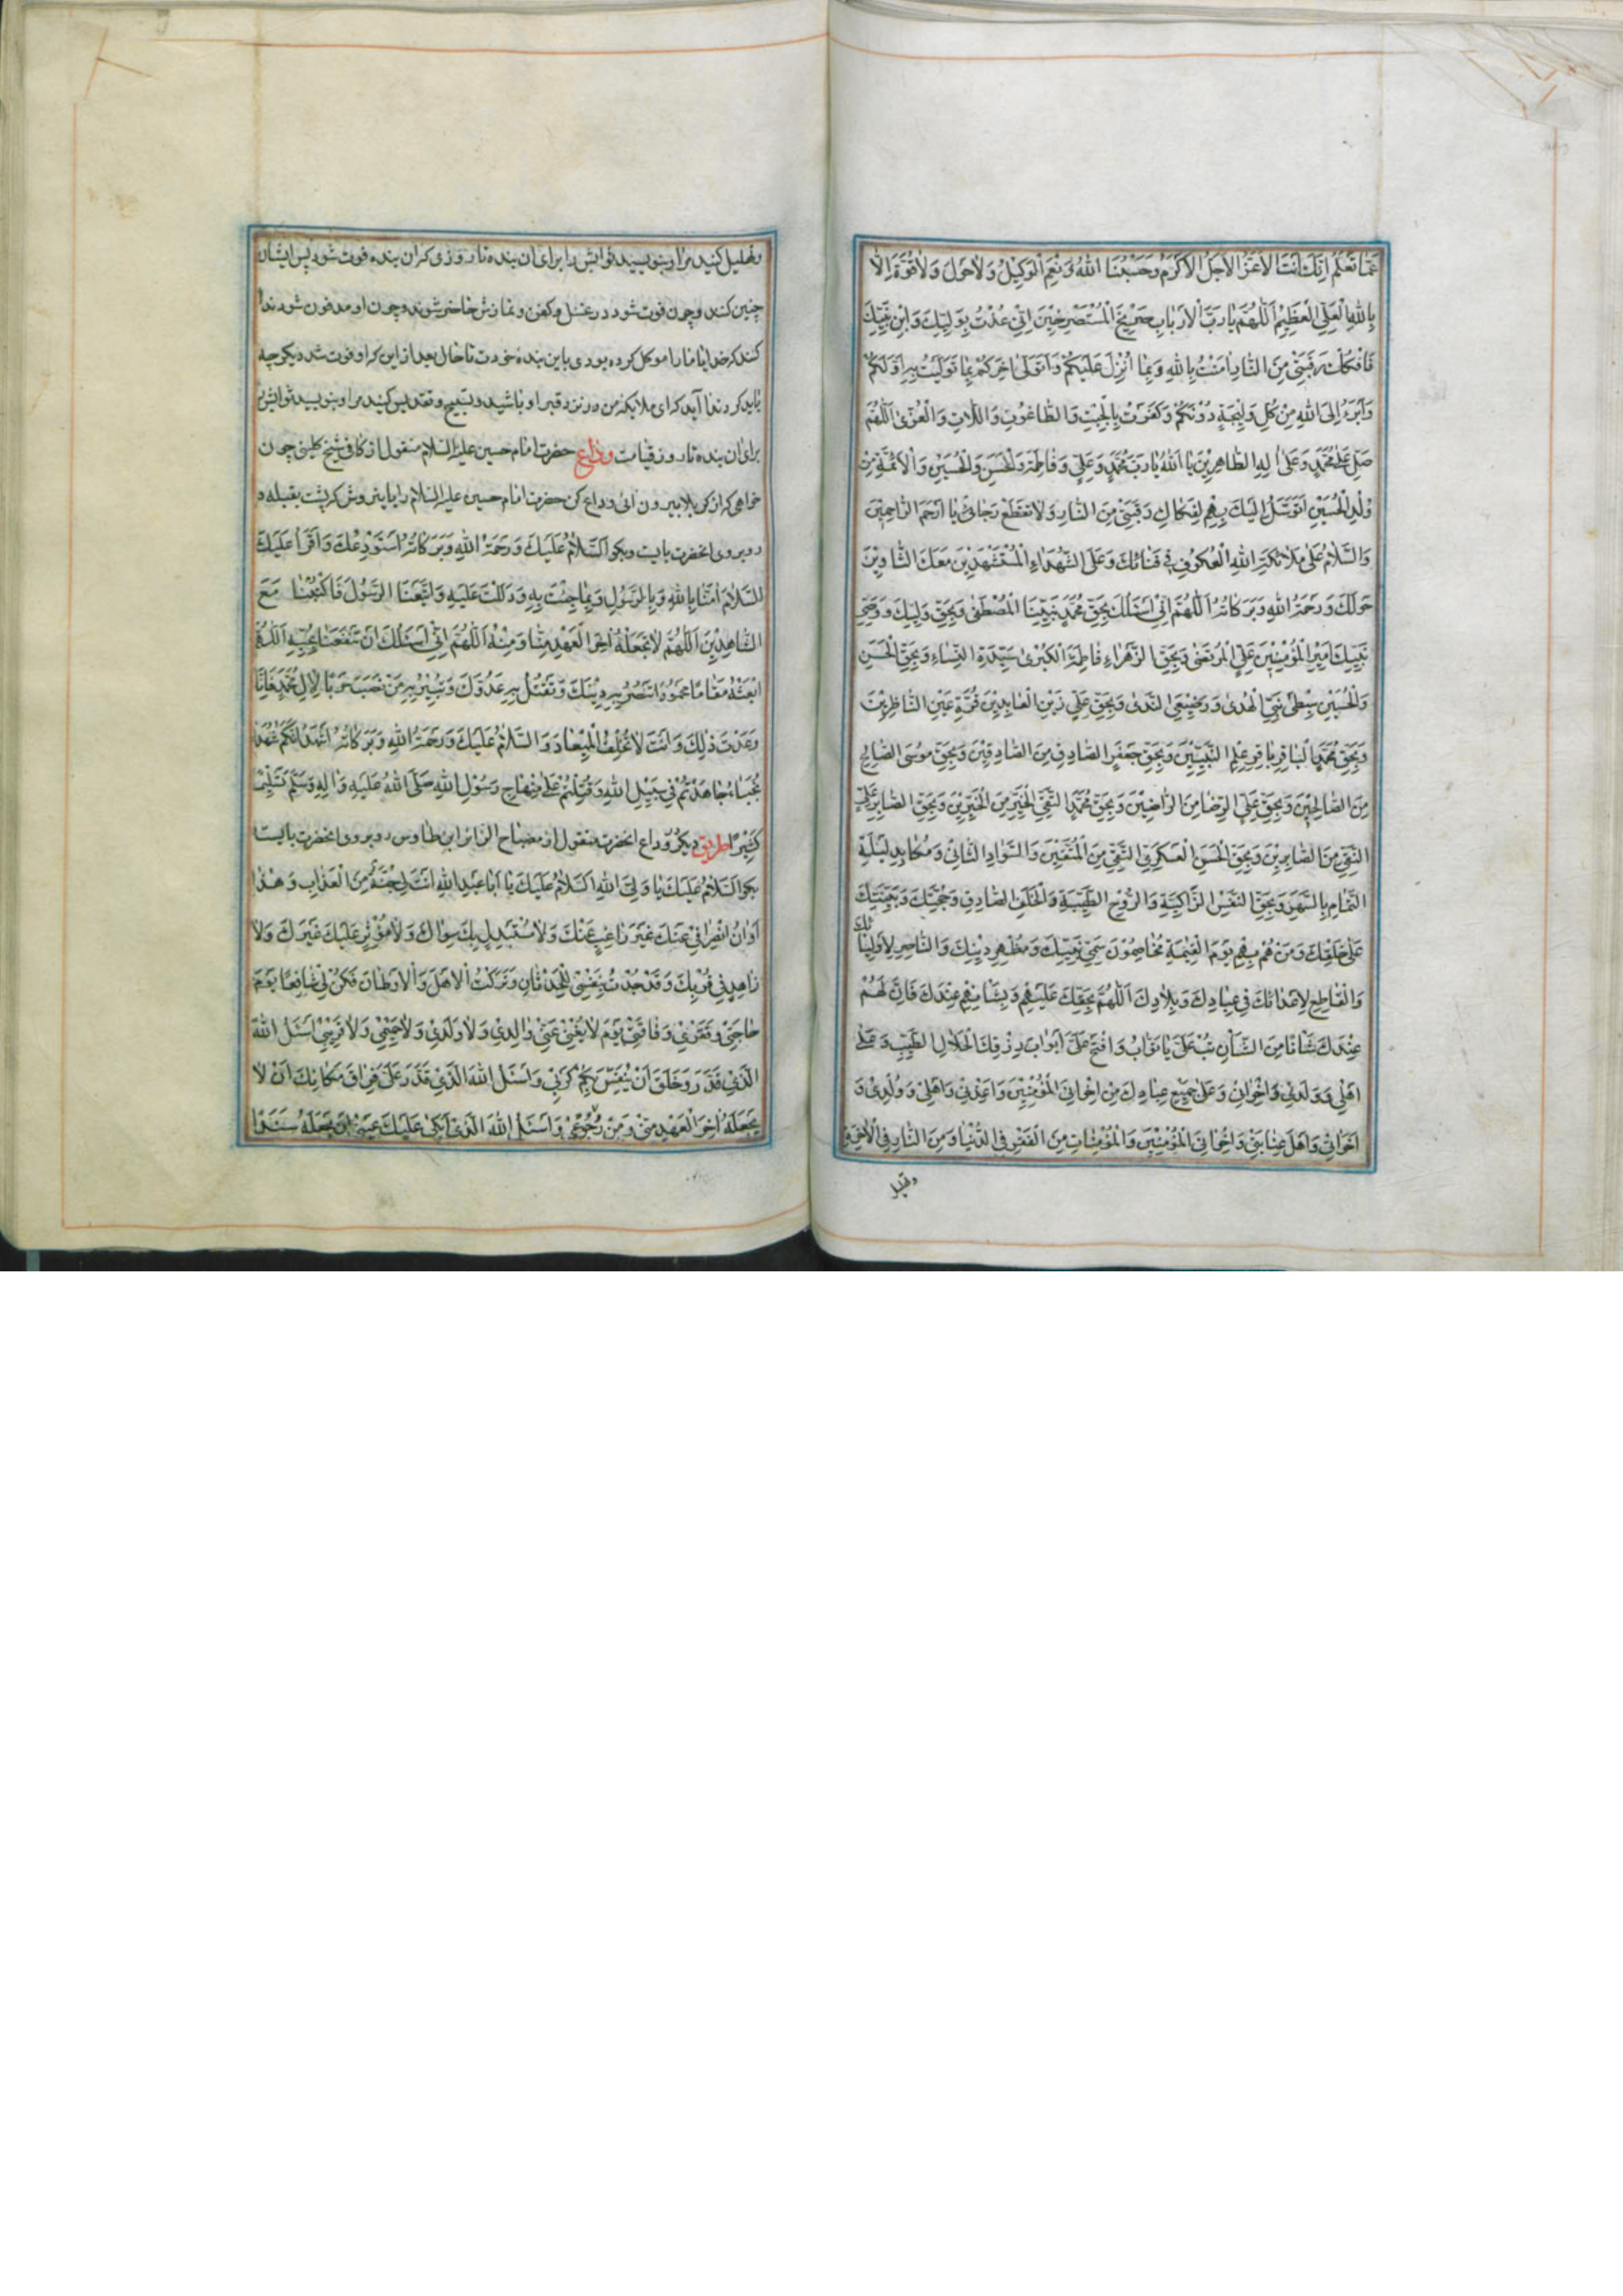 عَمَّا تَعْلَمُ اِنَّكَ اَنْتَ الْاَعَزُّ الْاَجَلُّ الْاَكْرَمُ وَحَسْبُنَا اللهُ وَنِعْمَ الْوَكِيْلُ وَلَا حَوْلَ وَلَا قُوَّةَ اِلَّا
بِاللهِ الْعَلِيِّ الْعَظِيْمِ اَللّٰهُمَّ يَا رَبَّ الْاَرْبَابِ صَرِيْخَ الْمُسْتَصْرِخِيْنَ اِنِّي عُذْتُ بِوَلِيِّكَ وَابْنِ نَبِيِّكَ
فَافْكُكْ رَقَبَتِي مِنَ النَّارِ اٰمَنْتُ بِاللهِ وَبِمَا اُنْزِلَ عَلَيْكُمْ وَاَتَوَلّٰى اٰخِرَكُمْ بِمَا تَوَلَّيْتُ بِهِ اَوَّلَكُمْ
وَاَبْرَءُ اِلَى اللهِ مِنْ كُلِّ وَلِيْجَةٍ دُوْنَكُمْ وَكَفَرْتُ بِالْجِبْتِ وَالطَّاغُوْتِ وَاللَّاتِ وَالْعُزّٰى اَللّٰهُمَّ
صَلِّ عَلٰى مُحَمَّدٍ وَعَلٰى اٰلِهِ الطَّاهِرِيْنَ يَا اَللهُ يَا رَبَّ مُحَمَّدٍ وَعَلِيٍّ وَفَاطِمَةَ وَالْحَسَنِ وَالْحُسَيْنِ وَالْاَئِمَّةِ مِنْ
وُلْدِ الْحُسَيْنِ اَتَوَسَّلُ اِلَيْكَ بِهِمْ لِفَكَاكِ رَقَبَتِي مِنَ النَّارِ وَلَا تَقْطَعْ رَجَائِي يَا اَرْحَمَ الرَّاحِمِيْنَ
وَالسَّلَامُ عَلٰى مَلَائِكَةِ اللهِ الْعُكُوْفِ فِي فِنَائِكَ وَعَلَى الشُّهَدَاءِ الْمُسْتَشْهَدِيْنَ مَعَكَ الثَّاوِيْنَ
حَوْلَكَ وَرَحْمَةُ اللهِ وَبَرَكَاتُهُ اَللّٰهُمَّ اِنِّي اَسْئَلُكَ بِحَقِّ مُحَمَّدٍ نَبِيِّنَا الْمُصْطَفٰى وَبِحَقِّ وَلِيِّكَ وَوَصِيِّ
نَبِيِّكَ اَمِيْرِ الْمُؤْمِنِيْنَ عَلِيٍّ الْمُرْتَضٰى وَبِحَقِّ الزَّهْرَاءِ فَاطِمَةَ الْكُبْرٰى سَيِّدَةِ النِّسَاءِ وَبِحَقِّ الْحَسَنِ
وَالْحُسَيْنِ سِبْطَيْ نَبِيِّ الْهُدٰى وَرَضِيْعَيِ النَّدٰى وَبِحَقِّ عَلِيٍّ زَيْنِ الْعَابِدِيْنَ قُرَّةِ عَيْنِ النَّاظِرِيْنَ
وَبِحَقِّ مُحَمَّدٍ الْبَاقِرِ بَاقِرِ عِلْمِ النَّبِيِّيْنَ وَبِحَقِّ جَعْفَرٍ الصَّادِقِ مِنَ الصَّادِقِيْنَ وَبِحَقِّ مُوْسَى الصَّالِحِ
مِنَ الصَّالِحِيْنَ وَبِحَقِّ عَلِيٍّ الرِّضَا مِنَ الرَّاضِيْنَ وَبِحَقِّ مُحَمَّدٍ التَّقِيِّ الْخَيِّرِ مِنَ الْخَيِّرِيْنَ وَبِحَقِّ الصَّابِرِ عَلِيٍّ
النَّقِيِّ مِنَ الصَّابِرِيْنَ وَبِحَقِّ الْحَسَنِ الْعَسْكَرِيِّ التَّقِيِّ مِنَ الْمُتَّقِيْنَ وَالسَّوَادِ الثَّانِي وَمُكَابِدِ لَيْلَةِ
التَّمَامِ بِالسَّهَرِ وَبِحَقِّ النَّفْسِ الزَّاكِيَةِ وَالرُّوْحِ الطَّيِّبَةِ وَالْخَلَفِ الصَّادِقِ وَحُجَّتِكَ وَبَقِيَّتِكَ
عَلٰى خَلْقِكَ وَمَنْ هُمْ بِهِمْ يَوْمَ الْقِيٰمَةِ مُخَاصِمُوْنَ سَمِيِّ نَبِيِّكَ وَمُظْهِرِ دِيْنِكَ وَالنَّاصِرِ لِاَوْلِيَائِكَ
وَالْقَاطِعِ لِاَعْدَائِكَ فِي عِبَادِكَ وَبِلَادِكَ اَللّٰهُمَّ بِحَقِّكَ عَلَيْهِمْ وَبِشَانِهِمْ عِنْدَكَ فَاِنَّ لَهُمْ
عِنْدَكَ شَاْنًا مِنَ الشَّاْنِ تُبْ عَلَيَّ يَا تَوَّابُ وَافْتَحْ عَلَيَّ اَبْوَابَ رِزْقِكَ الْحَلَالِ الطَّيِّبِ وَعَلٰى
اَهْلِي وَوَلَدِي وَاِخْوَانِي وَعَلٰى جَمِيْعِ عِبَادِكَ مِنْ اِخْوَانِيَ الْمُؤْمِنِيْنَ وَاَعِذْنِي وَاَهْلِي وَوُلْدِي وَ
اَخَوَاتِي وَاَهْلَ عِنَايَتِي وَاِخْوَانِيَ الْمُؤْمِنِيْنَ وَالْمُؤْمِنَاتِ مِنَ الْفَقْرِ فِي الدُّنْيَا وَمِنَ النَّارِ فِي الْاٰخِرَةِ
وتهليل كنيد مرا وبنويسيد ثوابش را براى ان بنده تا روزى كه ان بنده فوت شود پس ايشان
چنين كنند وچون فوت شود در غسل وكفن ونمازش حاضر شوند وچون او مدفون شود ندا
كنند كه خدايا ما را موكل كرده بودى باين بندۀ خودت تا حال بعد از اين كه او فوت شد ديگر چه
بايد كرد ندا آيد كه اى ملائكۀ من در نزد قبر او باشيد وتسبيح وتقديس كنيد مرا وبنويسيد ثوابش
براى ان بنده تا روز قيامت وداع حضرت امام حسين عليه السلام منقول از كافى شيخ كلينى چون
خواهى كه از كربلا بيرون ائى وداع كن حضرت امام حسين عليه السلام را باين روش كه پشت بقبله و
روبروى انحضرت بايست وبگو اَلسَّلَامُ عَلَيْكَ وَرَحْمَةُ اللهِ وَبَرَكَاتُهُ اَسْتَوْدِعُكَ وَاَقْرَاُ عَلَيْكَ
السَّلَامَ اٰمَنَّا بِاللهِ وَبِالرَّسُوْلِ وَبِمَا جِئْتَ بِهِ وَدَلَلْتَ عَلَيْهِ وَاتَّبَعْنَا الرَّسُوْلَ فَاكْتُبْنَا مَعَ
الشَّاهِدِيْنَ اَللّٰهُمَّ لَا تَجْعَلْهُ اٰخِرَ الْعَهْدِ مِنَّا وَمِنْهُ اَللّٰهُمَّ اِنِّي اَسْئَلُكَ اَنْ تَنْفَعَنَا بِحُبِّهِ اَللّٰهُمَّ
ابْعَثْهُ مَقَامًا مَحْمُوْدًا تَنْصُرُ بِهِ دِيْنَكَ وَتَقْتُلُ بِهِ عَدُوَّكَ وَتُبِيْرُ بِهِ مَنْ نَصَبَ حَرْبًا لِاٰلِ مُحَمَّدٍ فَاِنَّكَ
وَعَدْتَ ذٰلِكَ وَاَنْتَ لَا تُخْلِفُ الْمِيْعَادَ وَالسَّلَامُ عَلَيْكَ وَرَحْمَةُ اللهِ وَبَرَكَاتُهُ اَشْهَدُ اَنَّكُمْ شُهَدَاءُ
نُجَبَاءُ جَاهَدْتُمْ فِي سَبِيْلِ اللهِ وَقُتِلْتُمْ عَلٰى مِنْهَاجِ رَسُوْلِ اللهِ صَلَّى اللهُ عَلَيْهِ وَاٰلِهِ وَسَلَّمَ تَسْلِيْمًا
كَثِيْرًا طريق ديگر وداع انحضرت منقول از مصباح الزائر ابن طاوس روبروى انحضرت بايست
بگو اَلسَّلَامُ عَلَيْكَ يَا وَلِيَّ اللهِ اَلسَّلَامُ عَلَيْكَ يَا اَبَا عَبْدِ اللهِ اَنْتَ لِي جُنَّةٌ مِنَ الْعَذَابِ وَهٰذَا
اَوَانُ انْصِرَافِي عَنْكَ غَيْرَ رَاغِبٍ عَنْكَ وَلَا مُسْتَبْدِلٍ بِكَ سِوَاكَ وَلَا مُؤْثِرٍ عَلَيْكَ غَيْرَكَ وَلَا
زَاهِدٍ فِي قُرْبِكَ وَقَدْ جُدْتُ بِنَفْسِي لِلْحَدَثَانِ وَتَرَكْتُ الْاَهْلَ وَالْاَوْطَانَ فَكُنْ لِي شَافِعًا يَوْمَ
حَاجَتِي وَفَقْرِي وَفَاقَتِي يَوْمَ لَا يُغْنِي عَنِّي وَالِدِي وَلَا وَلَدِي وَلَا حَمِيْمِي وَلَا قَرِيْبِي اَسْئَلُ اللهَ
الَّذِي قَدَّرَ وَخَلَقَ اَنْ يُنَفِّسَ بِكُمْ كَرْبِي وَاَسْئَلُ اللهَ الَّذِي قَدَّرَ عَلَيَّ فِرَاقَ مَكَانِكَ اَنْ لَا
يَجْعَلَهُ اٰخِرَ الْعَهْدِ مِنِّي وَمِنْ رُجُوْعِي وَاَسْئَلُ اللهَ الَّذِي اَبْكٰى عَلَيْكَ عَيْنِي اَنْ يَجْعَلَهُ سَنَدًا